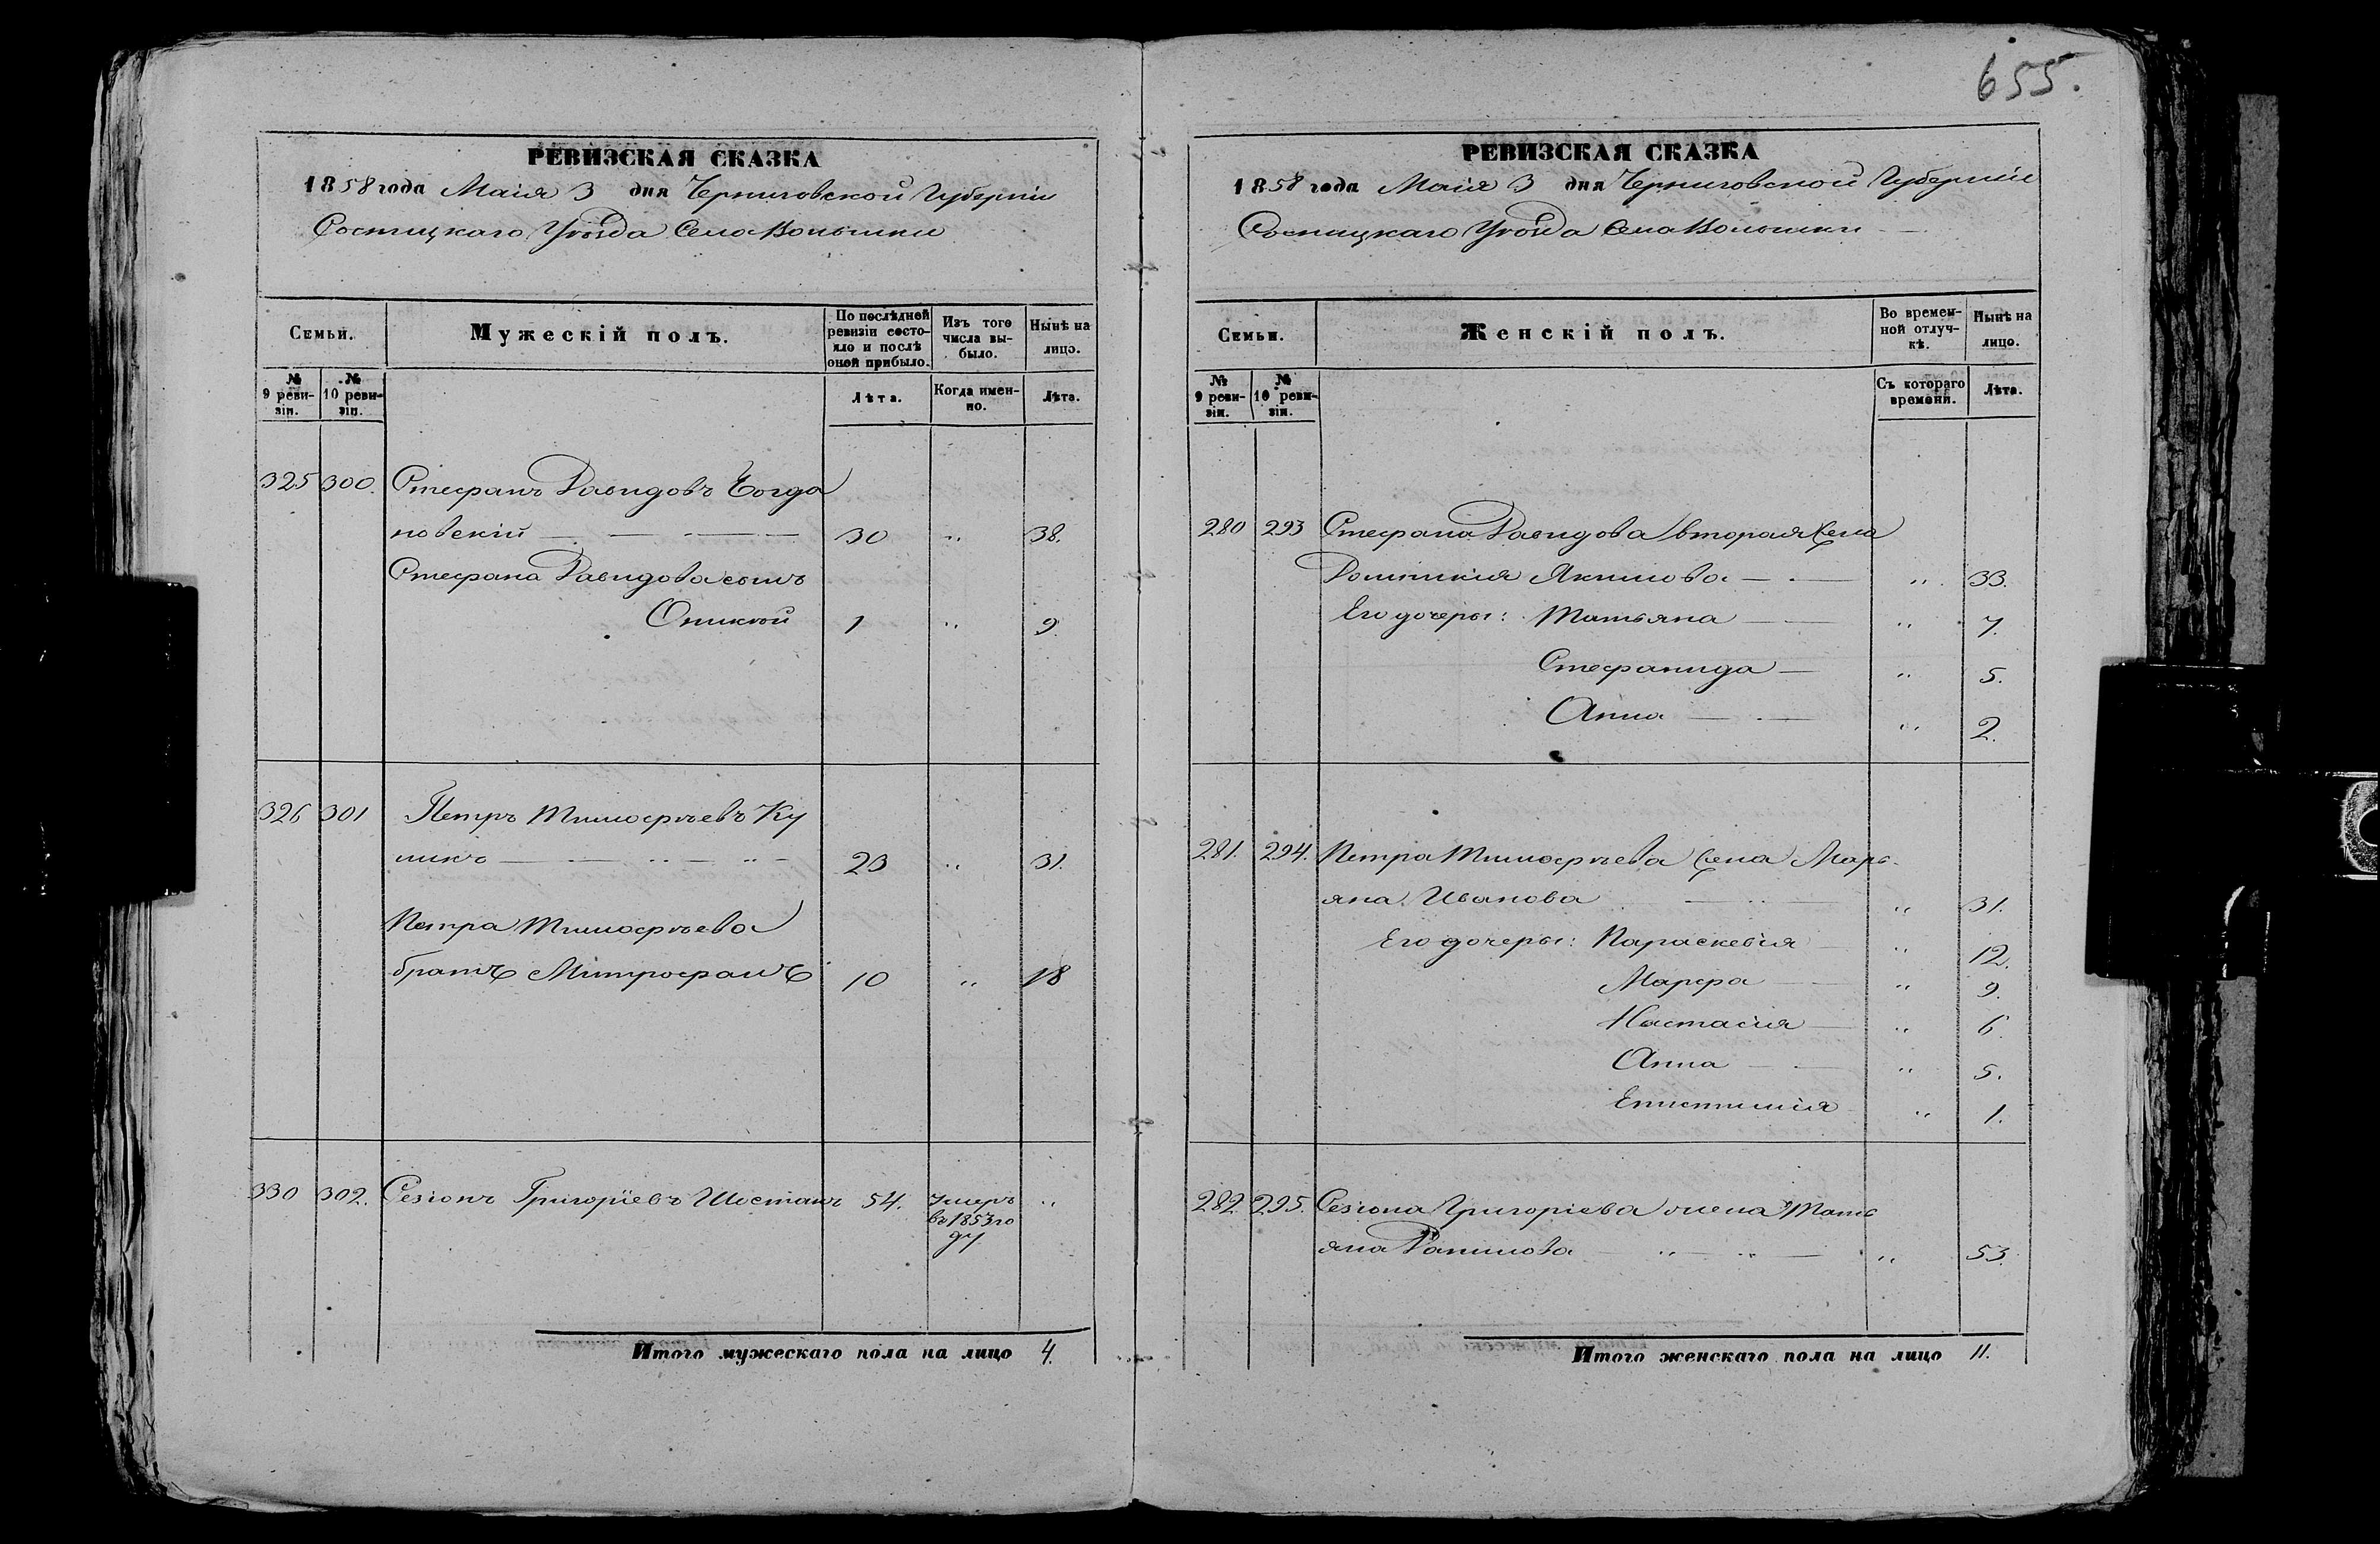 655.
РЕВИЗСКАЯ СКАЗКА
1858 года Маія 3 дня Черниговской Губерніи
Сосницкаго Уѣзда Села Волынки
Семьи.
Мужескій полъ.
По послѣдней ревизіи состояло и послѣ оной прибыло.
Изъ того числа выбыло.
Нынѣ на лицо.
№ 9 ревизіи.
№ 10 ревизіи.
Лѣта.
Когда именно.
Лѣта.
325 300. Стефанъ Давидовъ Богда
новскій 30 „ 38.
Стефана Давидова сынъ
Оникѣй 1 „ 9.
326 301 Петръ Тимофѣевъ Ку
ликъ 23 „ 31.
Петра Тимофѣева
братъ Митрофанъ 10 „ 18
330 302. Сезіонъ Григоріевъ Шостакъ 54. умеръ „
въ 1853 го
ду
Итого мужескаго пола на лицо 4.
РЕВИЗСКАЯ СКАЗКА
1858 года Маія 3 дня Черниговской Губерніи
Сосницкаго Уѣзда Села Волынки
Семьи.
Женскій полъ.
Во временной отлучкѣ.
Нынѣ на лицо.
№ 9 ревизіи.
№ 10 ревизіи.
Съ котораго времени.
Лѣта.
280 293 Стефана Давидова вторая жена
Домникія Якимова „ 33.
Его дочеры: Татьяна „ 7.
Стефанида „ 5.
Анна „ 2.
281. 294. Петра Тимофѣева жена Марь
яна Иванова „ 31.
Его дочеры: Параскевія „ 12.
Марфа „ 9.
Настасія „ 6.
Анна „ 5.
Епистимія „ 1.
282. 295. Сезіона Григоріева жена Тать
яна Данилова „ 53.
Итого женскаго пола на лицо 11.